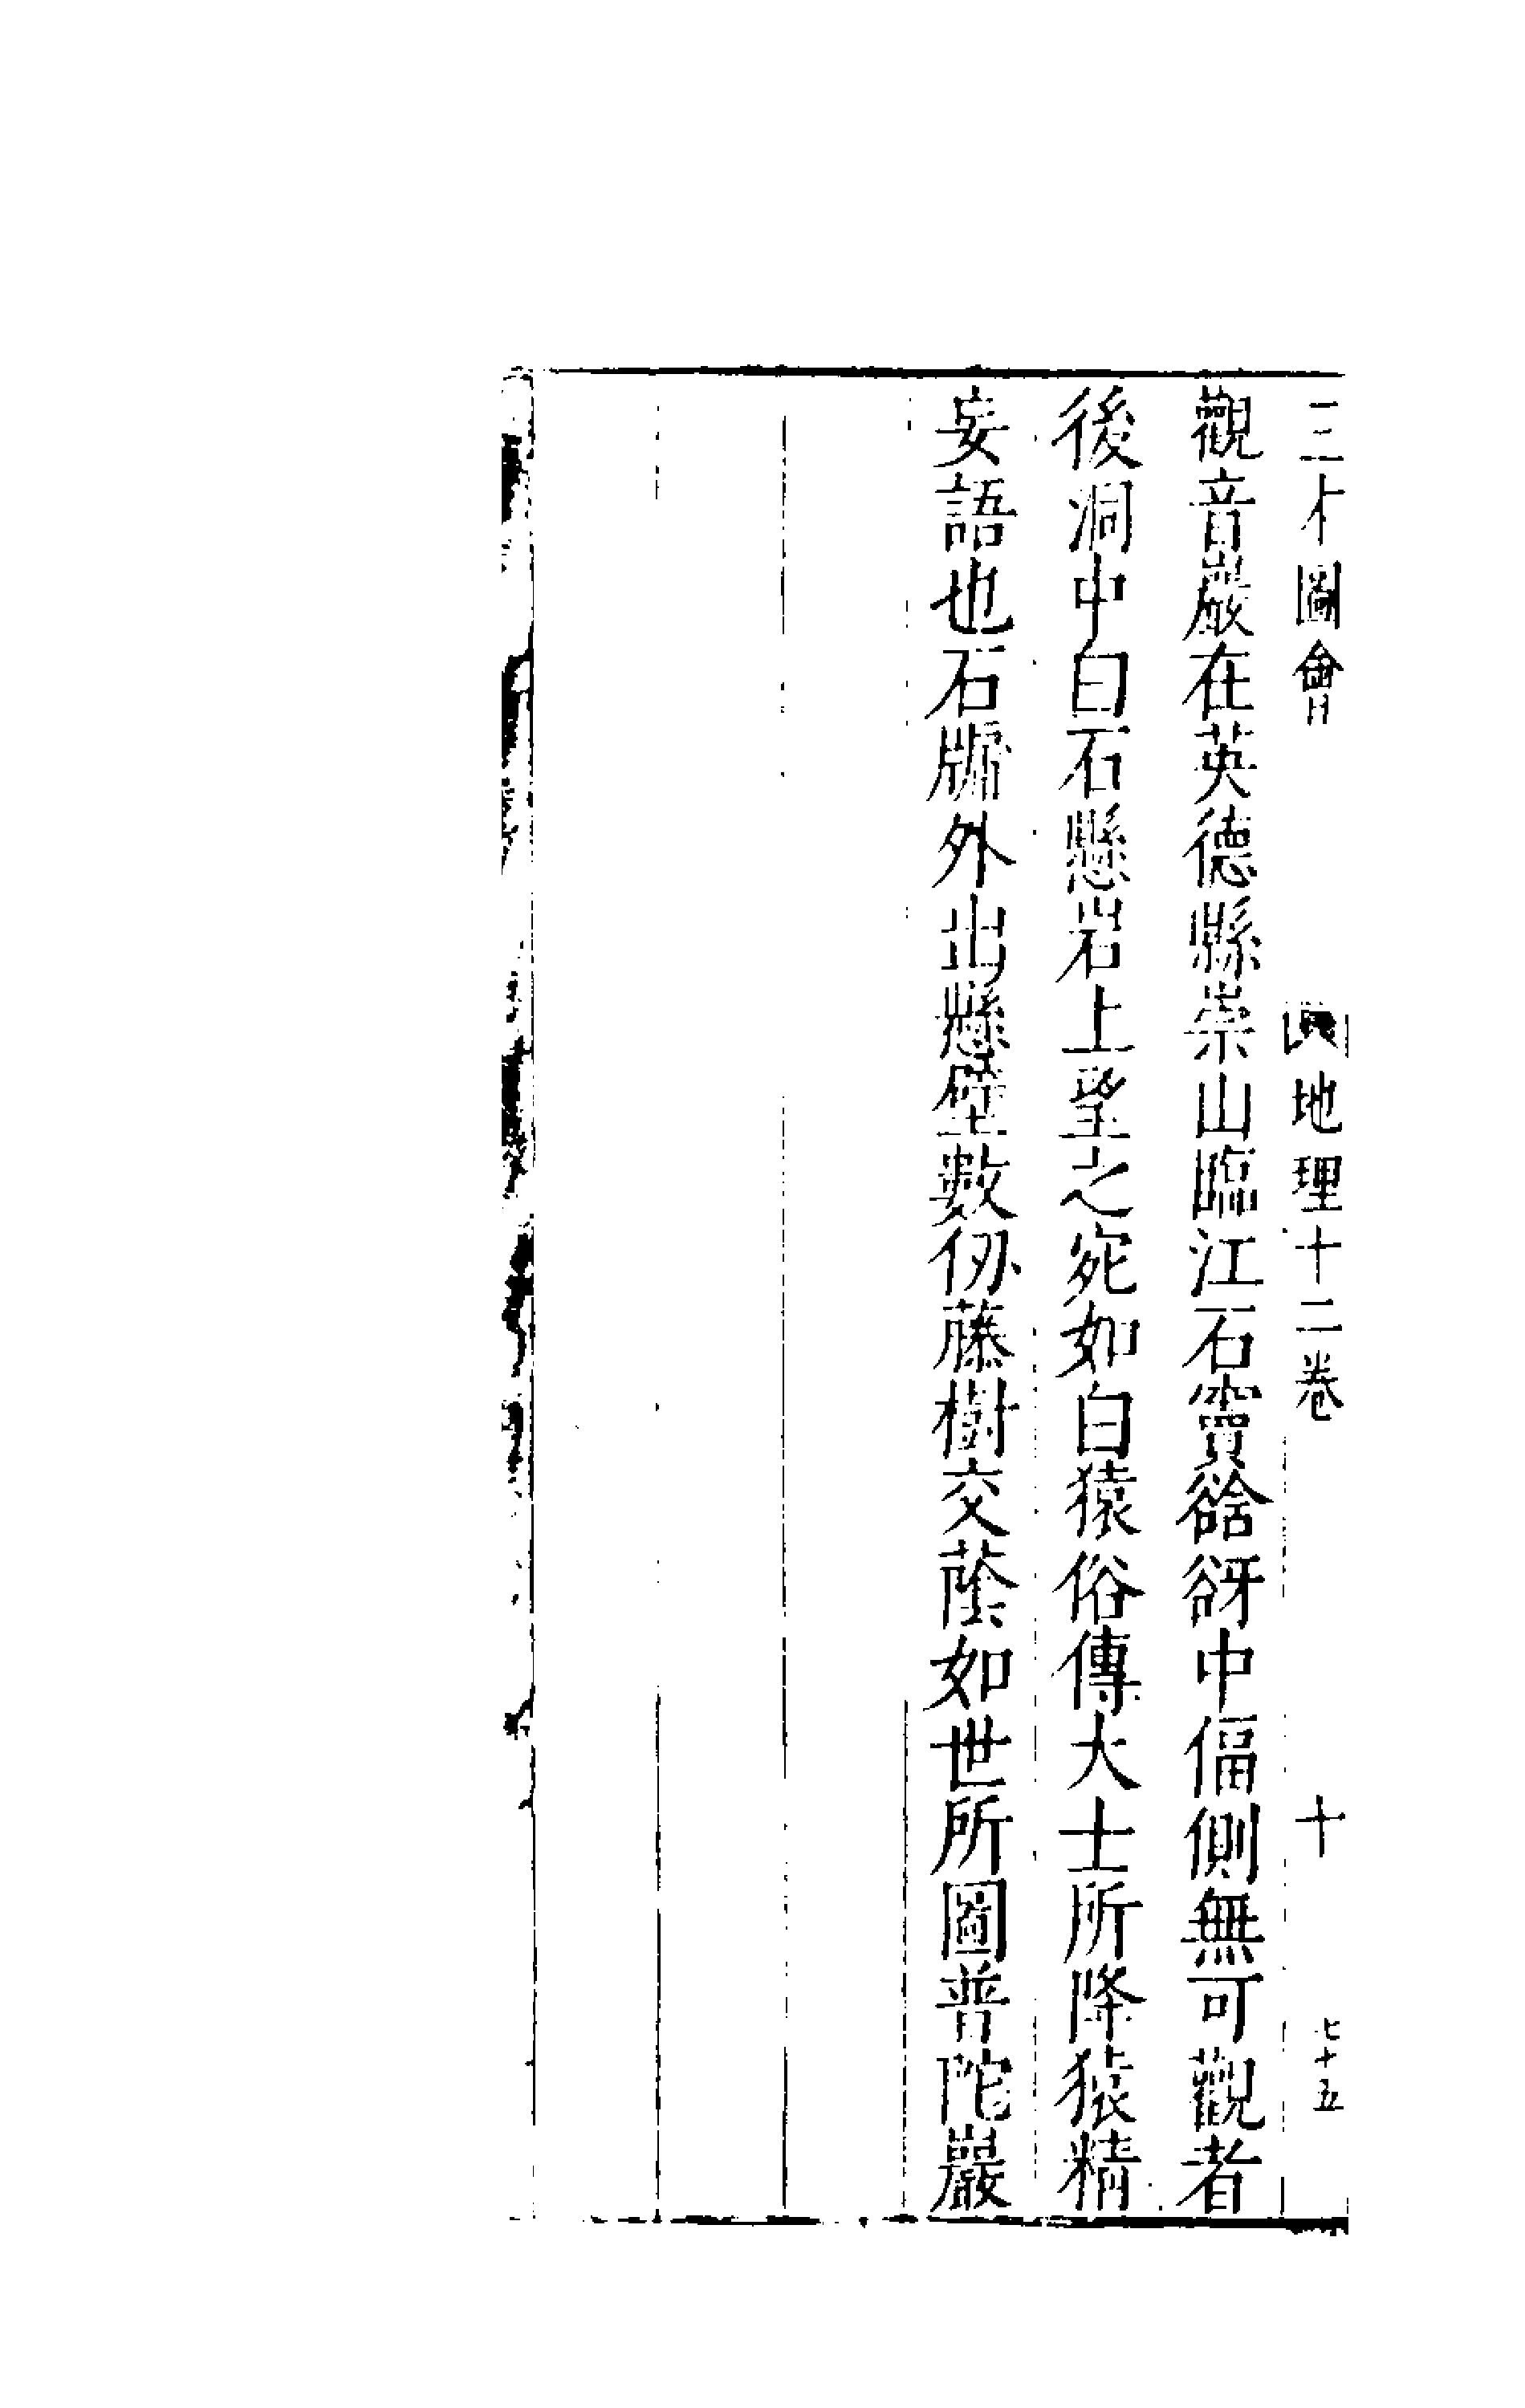 三才圖會
地理十二卷
十
七十五
觀音巖在英德縣崇山臨江石竇谽谺中偪側無可觀者
後洞中白石懸岩上望之宛如白猿俗傳大士所降猿精
妄語也石牖外出懸壁數仭藤樹交蔭如世所圖普陀巖